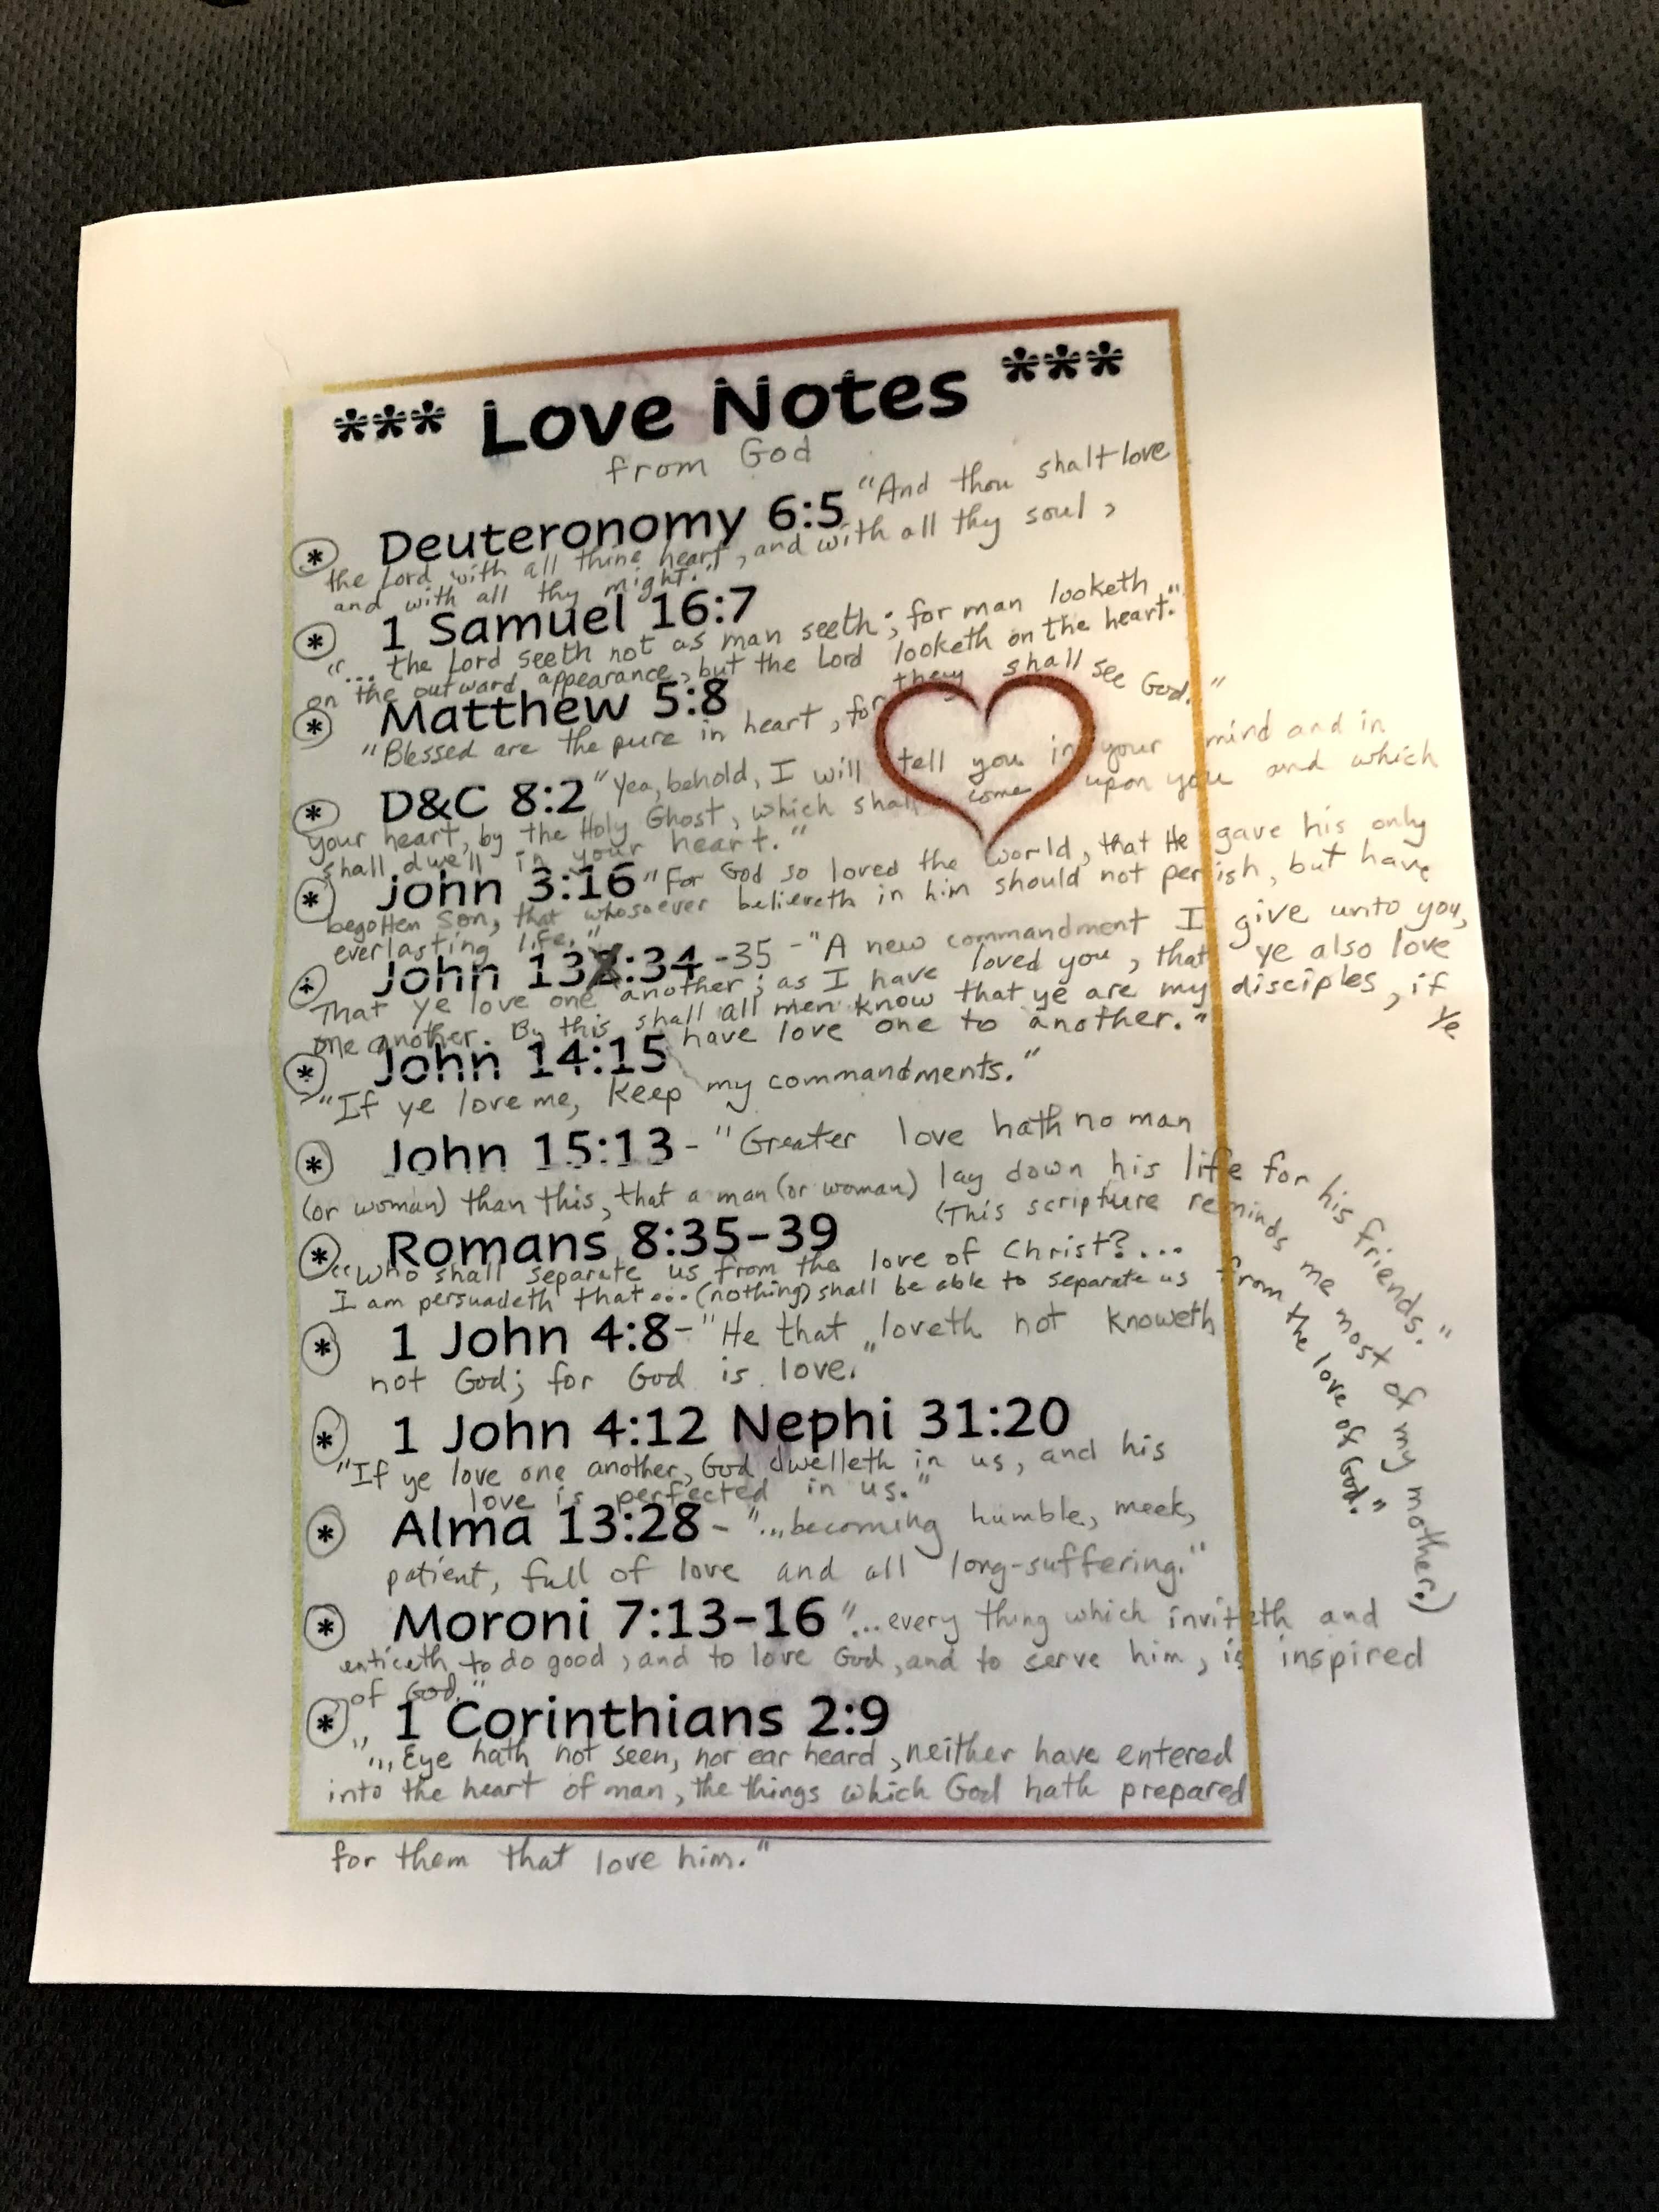 *** Love Notes ***
from God
* Deuteronomy 6:5 "And thou shalt love
the Lord with all thine heart, and with all thy soul,
and with all thy might."
* 1 Samuel 16:7
"... the Lord seeth not as man seeth; for man looketh
on the outward appearance, but the Lord looketh on the heart."
* Matthew 5:8
"Blessed are the pure in heart, for they shall see God."
* D&C 8:2 "Yea, behold, I will tell you in your mind and in
your heart, by the Holy Ghost, which shall come upon you and which
shall dwell in your heart."
* John 3:16 "For God so loved the world, that He gave his only
begotten Son, that whosoever believeth in him should not perish, but have
everlasting life."
* John 132:34-35 - "A new commandment I give unto you,
That ye love one another; as I have loved you, that ye also love
one another. By this shall all men know that ye are my disciples, if ye
have love one to another."
* John 14:15
"If ye love me, keep my commandments."
* John 15:13 - "Greater love hath no man
(or woman) than this, that a man (or woman) lay down his life for his friends."
(This scripture reminds me most of my mother.)
* Romans 8:35-39
"Who shall separate us from the love of Christ?...
I am persuadeth that... (nothing) shall be able to separate us from the love of God."
* 1 John 4:8 - "He that loveth not knoweth
not God; for God is love."
* 1 John 4:12 Nephi 31:20
"If ye love one another, God dwelleth in us, and his
love is perfected in us."
* Alma 13:28 - "...becoming humble, meek,
patient, full of love and all long-suffering."
* Moroni 7:13-16 "...every thing which inviteth and
enticeth to do good, and to love God, and to serve him, is inspired
of God."
* 1 Corinthians 2:9
"... Eye hath not seen, nor ear heard, neither have entered
into the heart of man, the things which God hath prepared
for them that love him."